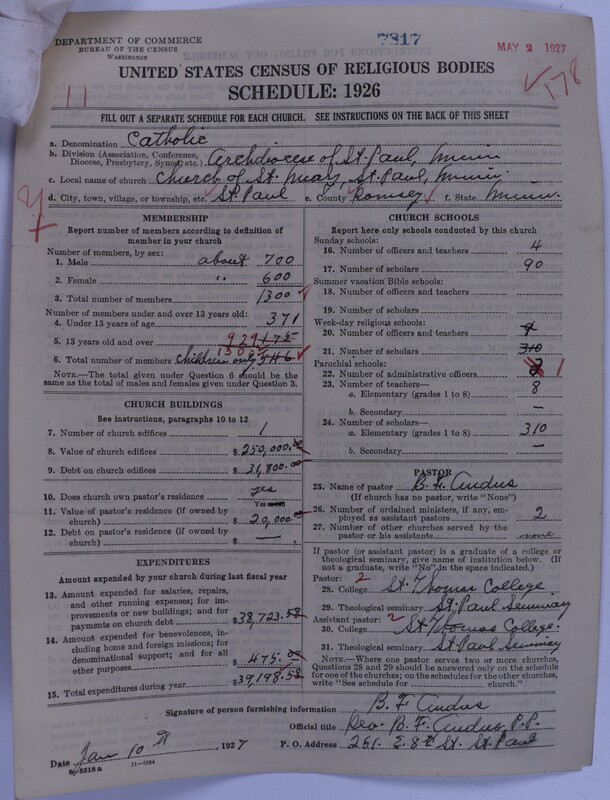 7817
MAY 2 1927
178
11
DEPARTMENT OF COMMERCE
BUREAU OF THE CENSUS
WASHINGTON
UNITED STATES CENSUS OF RELIGIOUS BODIES
SCHEDULE: 1926
FILL OUT A SEPARATE SCHEDULE FOR EACH CHURCH. SEE INSTRUCTIONS ON THE BACK OF THIS SHEET
a. Denomination Catholic
b. Division (Association, Conference, Diocese, Presbytery, Synod, etc.) Archdiocese of St. Paul, Minn
c. Local name of church Church of St. Mary, St. Paul, Minn.
d. City, town, village, or township, etc. St. Paul e. County Ramsey f. State Minn.
MEMBERSHIP
Report number of members according to definition of member in your church
Number of members, by sex:
1. Male about 700
2. Female " 600
3. Total number of members 1300
Number of members under and over 13 years old:
4. Under 13 years of age 371
5. 13 years old and over 929 175
6. Total number of members children only 1300 546
NOTE.—The total given under Question 6 should be the same as the total of males and females given under Question 3.
CHURCH BUILDINGS
See instructions, paragraphs 10 to 12
7. Number of church edifices 1
8. Value of church edifices $250,000.00
9. Debt on church edifices $31,800.00
10. Does church own pastor's residence yes
11. Value of pastor's residence (if owned by church) $20,000.00
12. Debt on pastor's residence (if owned by church) $ —
EXPENDITURES
Amount expended by your church during last fiscal year
13. Amount expended for salaries, repairs, and other running expenses; for improvements or new buildings; and for payments on church debt $38,723.58
14. Amount expended for benevolences, including home and foreign missions; for denominational support; and for all other purposes $475.00
15. Total expenditures during year $39,198.58
CHURCH SCHOOLS
Report here only schools conducted by this church
Sunday schools:
16. Number of officers and teachers 4
17. Number of scholars 90
Summer vacation Bible schools:
18. Number of officers and teachers
19. Number of scholars
Week-day religious schools:
20. Number of officers and teachers
21. Number of scholars 310
Parochial schools:
22. Number of administrative officers 1
23. Number of teachers—
a. Elementary (grades 1 to 8) 8
b. Secondary —
24. Number of scholars—
a. Elementary (grades 1 to 8) 310
b. Secondary —
PASTOR
25. Name of pastor B. F. Andus
(If church has no pastor, write "None")
26. Number of ordained ministers, if any, employed as assistant pastors 2
27. Number of other churches served by the pastor or his assistants none
If pastor (or assistant pastor) is a graduate of a college or theological seminary, give name of institution. (If not a graduate, write "No" in the space indicated.)
Pastor: 2
28. College St. Thomas College
29. Theological seminary St. Paul Seminary
Assistant pastor: 2
30. College St Thomas College.
31. Theological seminary St Paul Seminary
NOTE.—Where one pastor serves two or more churches, Questions 28 and 29 should be answered only on the schedule for one of the churches; on the schedules for the other churches, write "See schedule for church."
Signature of person furnishing information B. F. Andus
Official title Rev. B. F. Andus P.P.
Date Jan 10th 1927 P. O. Address 251 E. 8th St. St. Paul
8-5518 a 11-9984